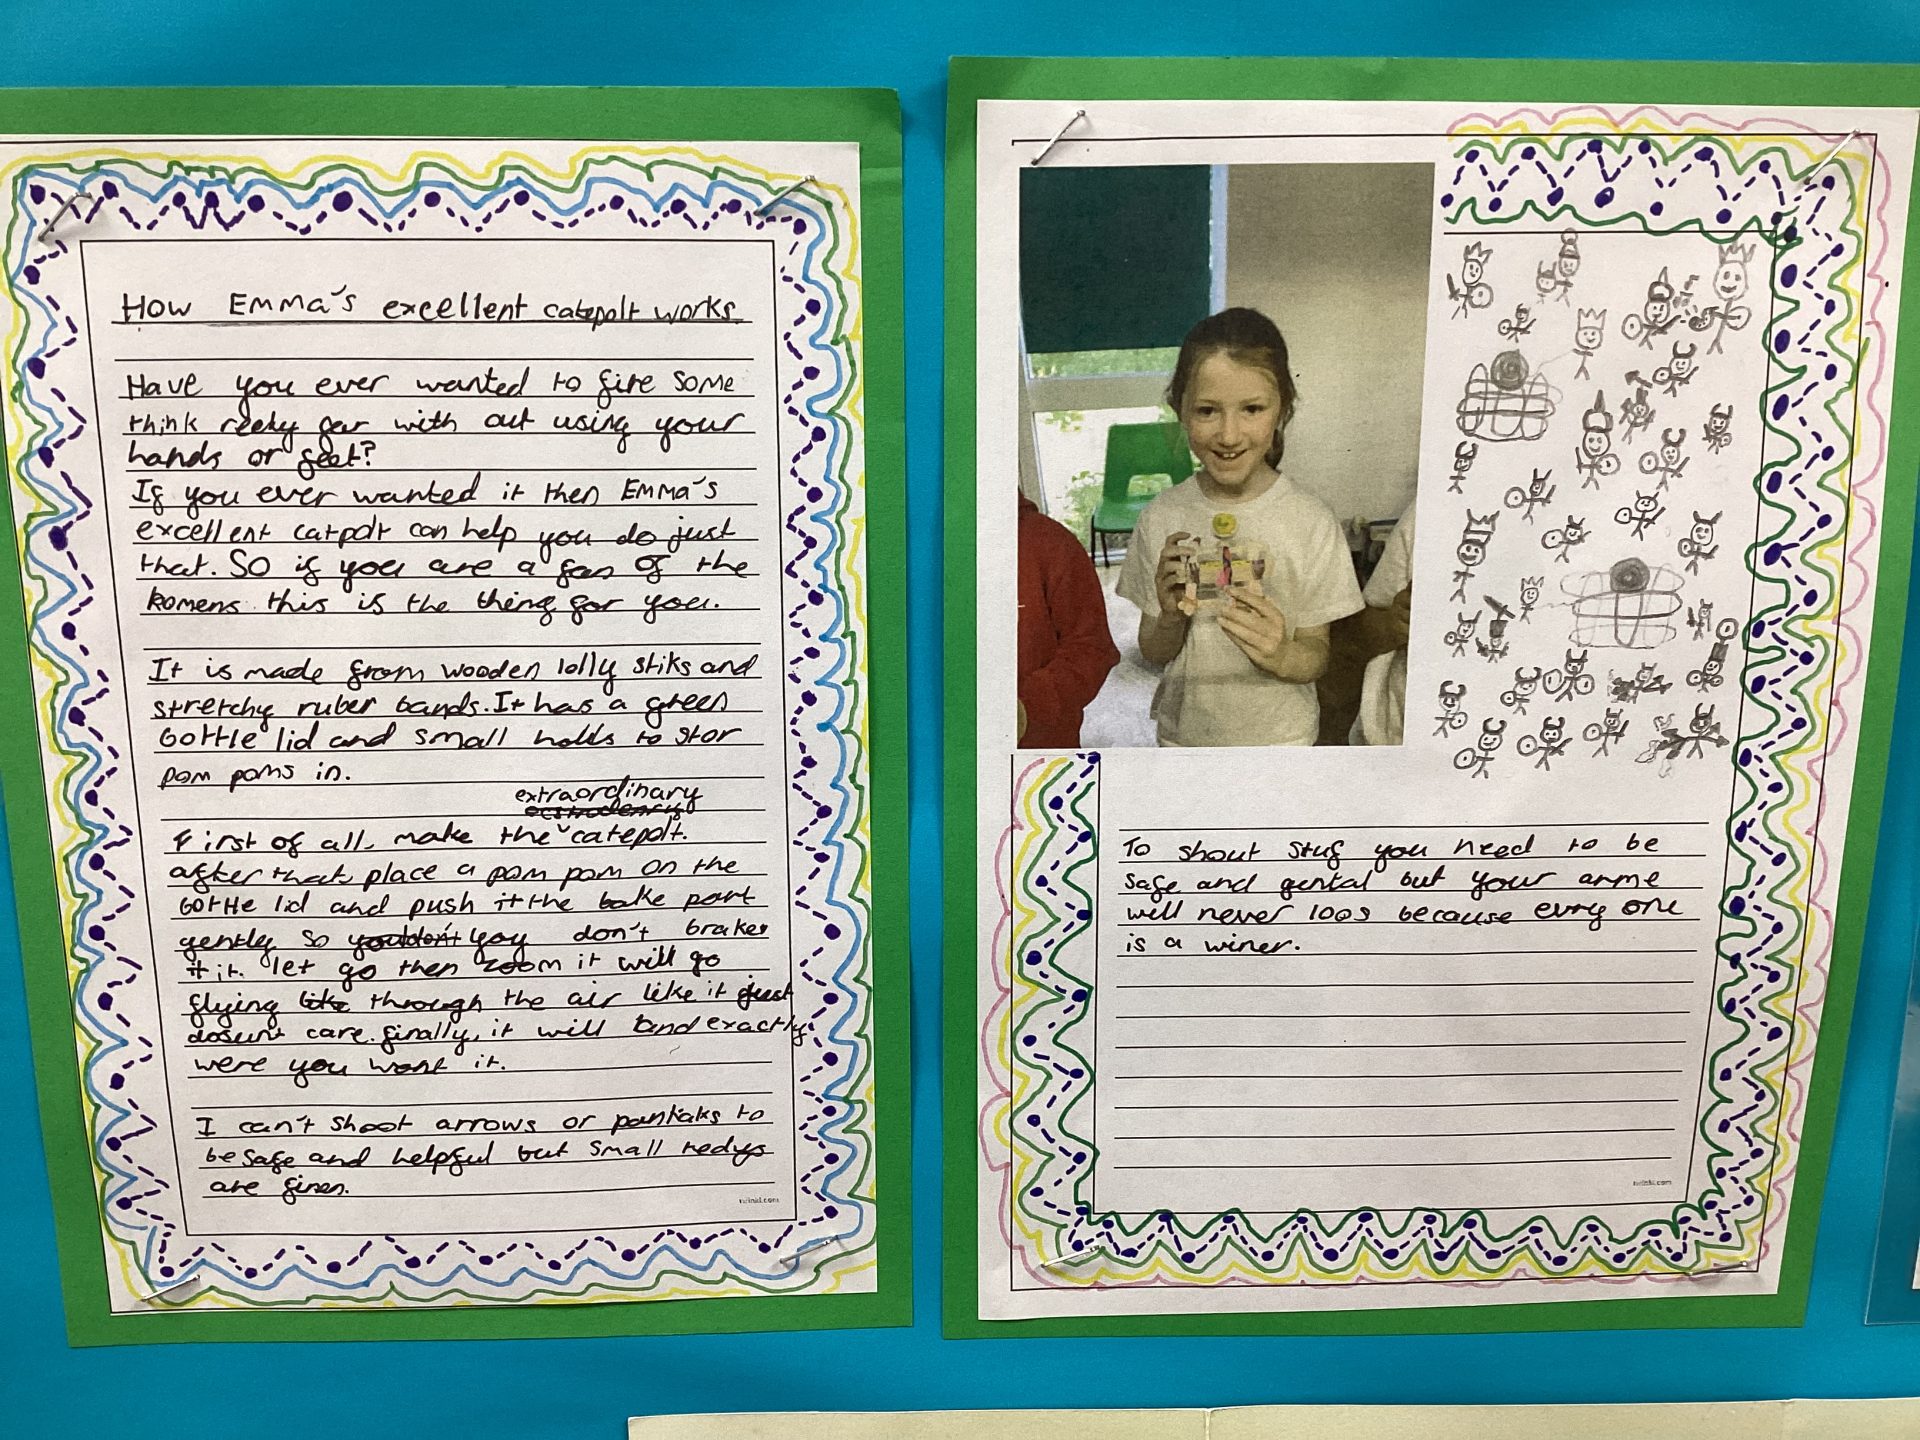 How Emma's excellent catepolt works
Have you ever wanted to fire some
think reely far with out using your
hands or feet?
If you ever wanted it then Emma's
excellent catpolt can help you do just
that. So if you are a fan of the
Romens this is the thing for you.
It is made from wooden lolly stiks and
stretchy ruber bands. It has a green
bottle lid and small holls to stor
pom poms in.
extraordinary
First of all, make the catepolt.
after that, place a pom pom on the
bottle lid and push it the bake part
gently so you don't brake
it. let go then zoom it will go
flying through the air like it just
dosunt care. finally, it will land exactly
were you want it.
I can't shoot arrows or to
be safe and helpful but small
are finen.
To shout stuf you need to be
safe and gental but your arme
will never loos because evry one
is a winer.